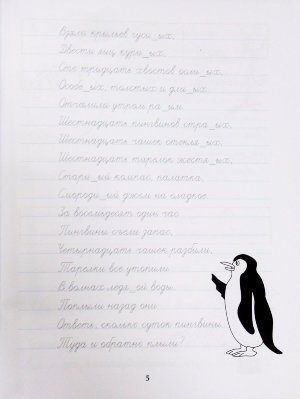 Взяли крыльев гуси_ых,
Двести яиц кури_ых,
Сто тридцать хвостов осли_ых,
Особе_ых, толстых и дли_ых.
Отчалили утром ра_им
Шестнадцать пингвинов стра_ых,
Шестнадцать чашек стекля_ых,
Шестнадцать тарелок жестя_ых,
Стари_ый компас, палатка,
Смороди_ый джем на сладкое.
За восемьдесят один час
Пингвины съели запас,
Четырнадцать чашек разбили,
Тарелки все утопили
В волнах ледя_ой воды.
Поплыли назад они.
Ответь, сколько суток пингвины
Туда и обратно плыли?
5